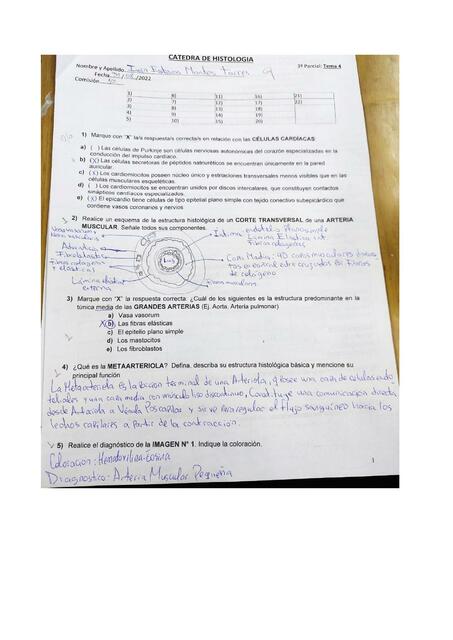 CATEDRA DE HISTOLOGIA
Nombre y Apellido: Montes Torres 3º Parcial: Tema 4
Fecha /2022
Comisión
1) 6) 11) 16) 21)
2) 7) 12) 17) 22)
3) 8) 13) 18)
4) 9) 14) 19)
5) 10) 15) 20)
1) Marque con "X" la/s respuesta/s correcta/s en relación con las CÉLULAS CARDÍACAS
a) ( ) Las células de Purkinje son células nerviosas autonómicas del corazón especializadas en la
conducción del impulso cardíaco.
b) (X) Las células secretoras de péptidos natriuréticos se encuentran únicamente en la pared
auricular.
c) (X) Los cardiomiocitos poseen núcleo único y estriaciones transversales menos visibles que en las
células musculares esqueléticas.
d) ( ) Los cardiomiocitos se encuentran unidos por discos intercalares, que constituyen contactos
sinápticos cardíacos especializados.
e) (X) El epicardio tiene células de tipo epitelial plano simple con tejido conectivo subepicárdico que
contiene vasos coronarios y nervios
2) Realice un esquema de la estructura histológica de un CORTE TRANSVERSAL de una ARTERIA
MUSCULAR. Señale todos sus componentes.
Vasavasorum
Adventicia
Fibroblastos
Fibras colagenas
y elásticas
Lámina elástica
externa
Luz
Intima: endotelio Plano simple
Lámina Elástica int
Fibras colagenas
Capa Media: 40 capas musculares
de colágeno
Fibras musculares
3) Marque con "X" la respuesta correcta. ¿Cuál de los siguientes es la estructura predominante en la
túnica media de las GRANDES ARTERIAS (Ej. Aorta. Arteria pulmonar)
a) Vasa vasorum
X b) Las fibras elásticas
c) El epitelio plano simple
d) Los mastocitos
e) Los fibroblastos
4) ¿Qué es la METAARTERIOLA? Defina, describa su estructura histológica básica y mencione su
principal función
La Metaarteriola Es la porcion terminal de una Arteriola, y posee una capa de celulas endo
teliales y una capa media con musculo liso discontinuo, Constituye una comunicacion directa
desde Arteriola a Vénula Poscapilar y sirve para regular el flujo sanguíneo hacia los
lechos capilares a partir de la contraccion.
5) Realice el diagnóstico de la IMAGEN N° 1. Indique la coloración.
Coloracion: Hematoxilina-Eosina
Diagnostico: Arteria Muscular Pequeña
1